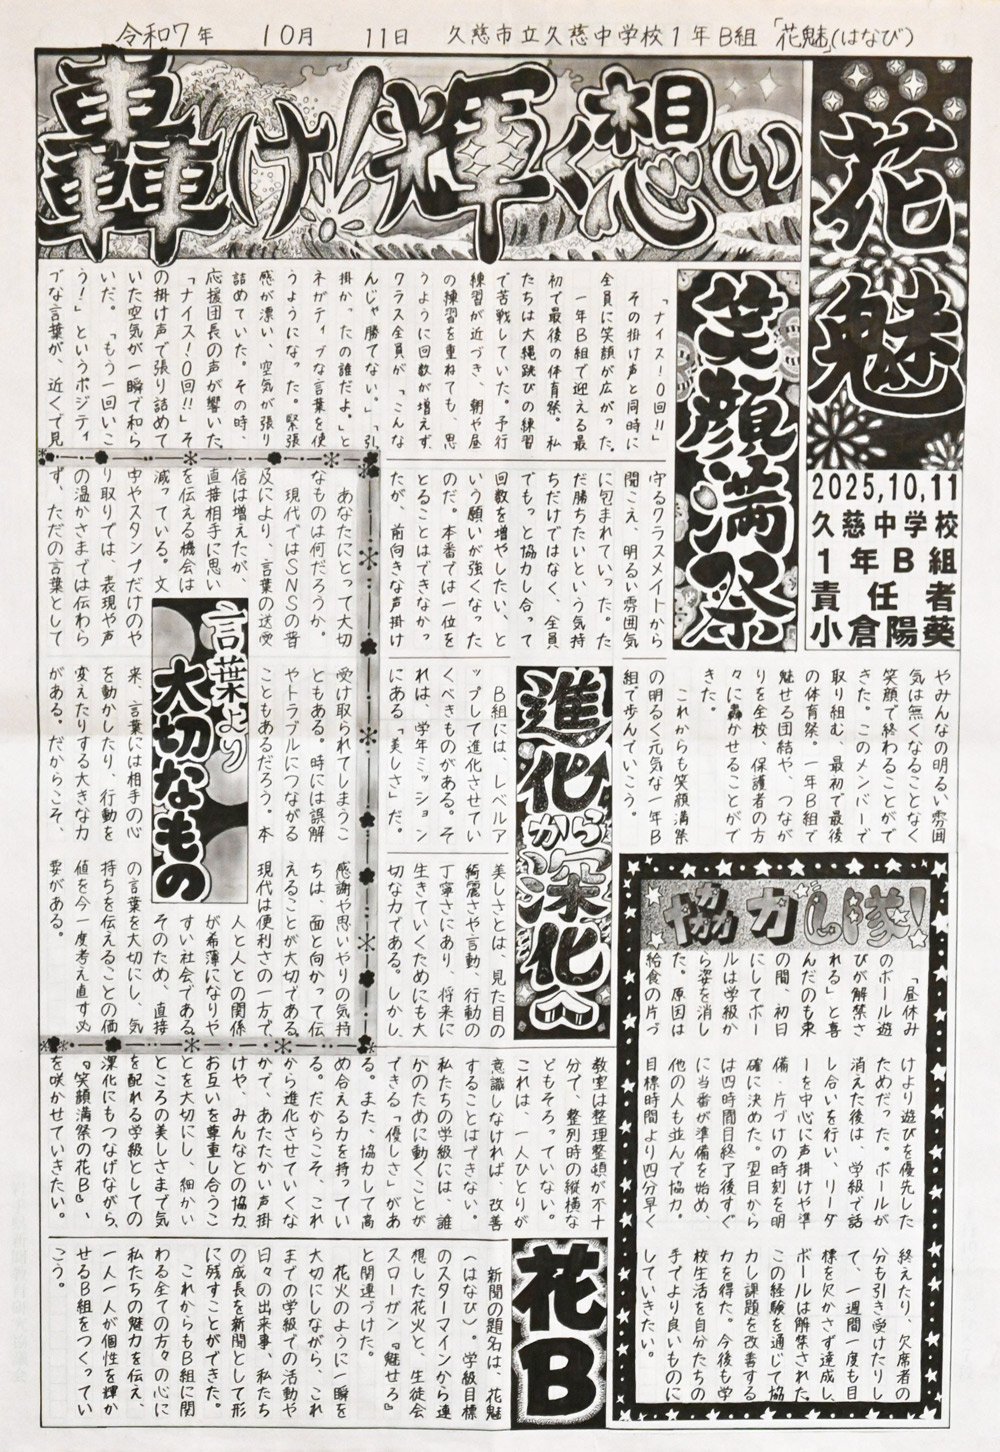 令和7年 10月 11日 久慈市立久慈中学校1年B組「花魅」(はなび)
花魅
2025,10,11
久慈中学校
1年B組
責任者
小倉陽葵
轟け!輝く想い
笑顔満祭
「ナイス!0回!!」
その掛け声と同時に
全員に笑顔が広がった。
一年B組で迎える最
初で最後の体育祭。私
たちは大縄跳びの練習
で苦戦していた。予行
練習が近づき、朝や昼
の練習を重ねても、思
うように回数が増えず、
クラス全員が「こんな
んじゃ勝てない。」「引
掛かったの誰だよ。」と
ネガティブな言葉を使
うようになった。緊張
感が漂い、空気が張り
詰めていた。その時、
応援団長の声が響いた。
「ナイス!0回!!」そ
の掛け声で張り詰めて
いた空気が一瞬で和ら
いだ。「もう一回いこ
う!」というポジティ
ブな言葉が、近くで見
守るクラスメイトから
聞こえ、明るい雰囲気
に包まれていった。た
だ勝ちたいという気持
ちだけではなく、全員
でもっと協力し合って
回数を増やしたい、と
いう願いが強くなった
のだ。本番では一位を
とることはできなかっ
たが、前向きな声掛け
やみんなの明るい雰囲
気は無くなることなく
笑顔で終わることがで
きた。このメンバーで
取り組む、最初で最後
の体育祭。一年B組で
魅せる団結や、つなが
りを全校、保護者の方
々に轟かせることがで
きた。
これからも笑顔満祭
の明るく元気な一年B
組で歩んでいこう。
言葉より大切なもの
あなたにとって大切
なものは何だろうか。
現代ではSNSの普
及により、言葉の送受
信は増えたが、
直接相手に思い
を伝える機会は
減っている。文
中やスタンプだけのや
り取りでは、表現や声
の温かさまでは伝わら
ず、ただの言葉として
受け取られてしまうこ
ともある。時には誤解
やトラブルにつながる
こともあるだろう。本
来、言葉には相手の心
を動かしたり、行動を
変えたりする大きな力
がある。だからこそ、
感謝や思いやりの気持
ちは、面と向かって伝
えることが大切である。
現代は便利さの一方で
人と人との関係
が希薄になりや
すい社会である。
そのため、直接
の言葉を大切にし、気
持ちを伝えることの価
値を今一度考え直す必
要がある。
進化から深化へ
B組には、レベルア
ップして進化させてい
くべきものがある。そ
れは、学年ミッション
にある「美しさ」だ。
美しさとは、見た目の
綺麗さや言動、行動の
丁寧さにあり、将来に
生きていくためにも大
切な力である。しかし、
教室は整理整頓が不十
分で、整列時の縦横な
どもそろっていない。
これは、一人ひとりが
意識しなければ、改善
することはできない。
私たちの学級には、誰
かのために動くことが
できる「優しさ」があ
る。また、協力して高
め合える力を持ってい
る。だからこそ、これ
から進化させていくな
かで、あたたかい声掛
けや、みんなとの協力、
お互いを尊重し合うこ
とを大切にし、細かい
ところの美しさまで気
を配れる学級としての
深化にもつなげながら、
『笑顔満祭の花B』、
を咲かせていきたい。
協力し隊!
「昼休み
のボール遊
びが解禁さ
れる」と喜
んだのも束
の間、初日
にしてボー
ルは学級か
ら姿を消し
た。原因は
給食の片づ
けより遊びを優先した
ためだった。ボールが
消えた後は、学級で話
し合いを行い、リーダ
ーを中心に声掛けや準
備・片づけの時刻を明
確に決めた。翌日から
は四時間目終了後すぐ
に当番が準備を始め、
他の人も並んで協力。
目標時間より四分早く
終えたり、欠席者の
分も引き受けたりし
て、一週間一度も目
標を欠かさず達成し、
ボールは解禁された。
この経験を通じて協
力し課題を改善する
力を得た。今後も学
校生活を自分たちの
手でより良いものに
していきたい。
花B
新聞の題名は、花魅
(はなび)。学級目標
のスターマインから連
想した花火と、生徒会
スローガン『魅せろ』
と関連づけた。
花火のように一瞬を
大切にしながら、これ
までの学級での活動や
日々の出来事、私たち
の成長を新聞として形
に残すことができた。
これからもB組に関
わる全ての方々の心に
私たちの魅力を伝え、
一人一人が個性を輝か
せるB組をつくってい
こう。